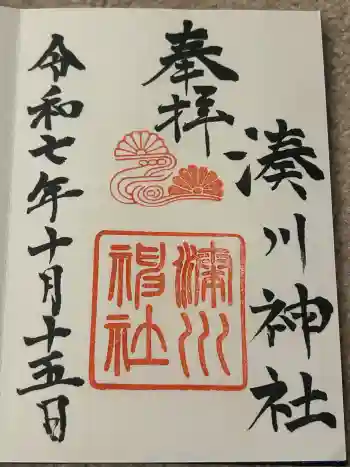 奉拝
湊川神社
湊川神社
令和七年十月十五日